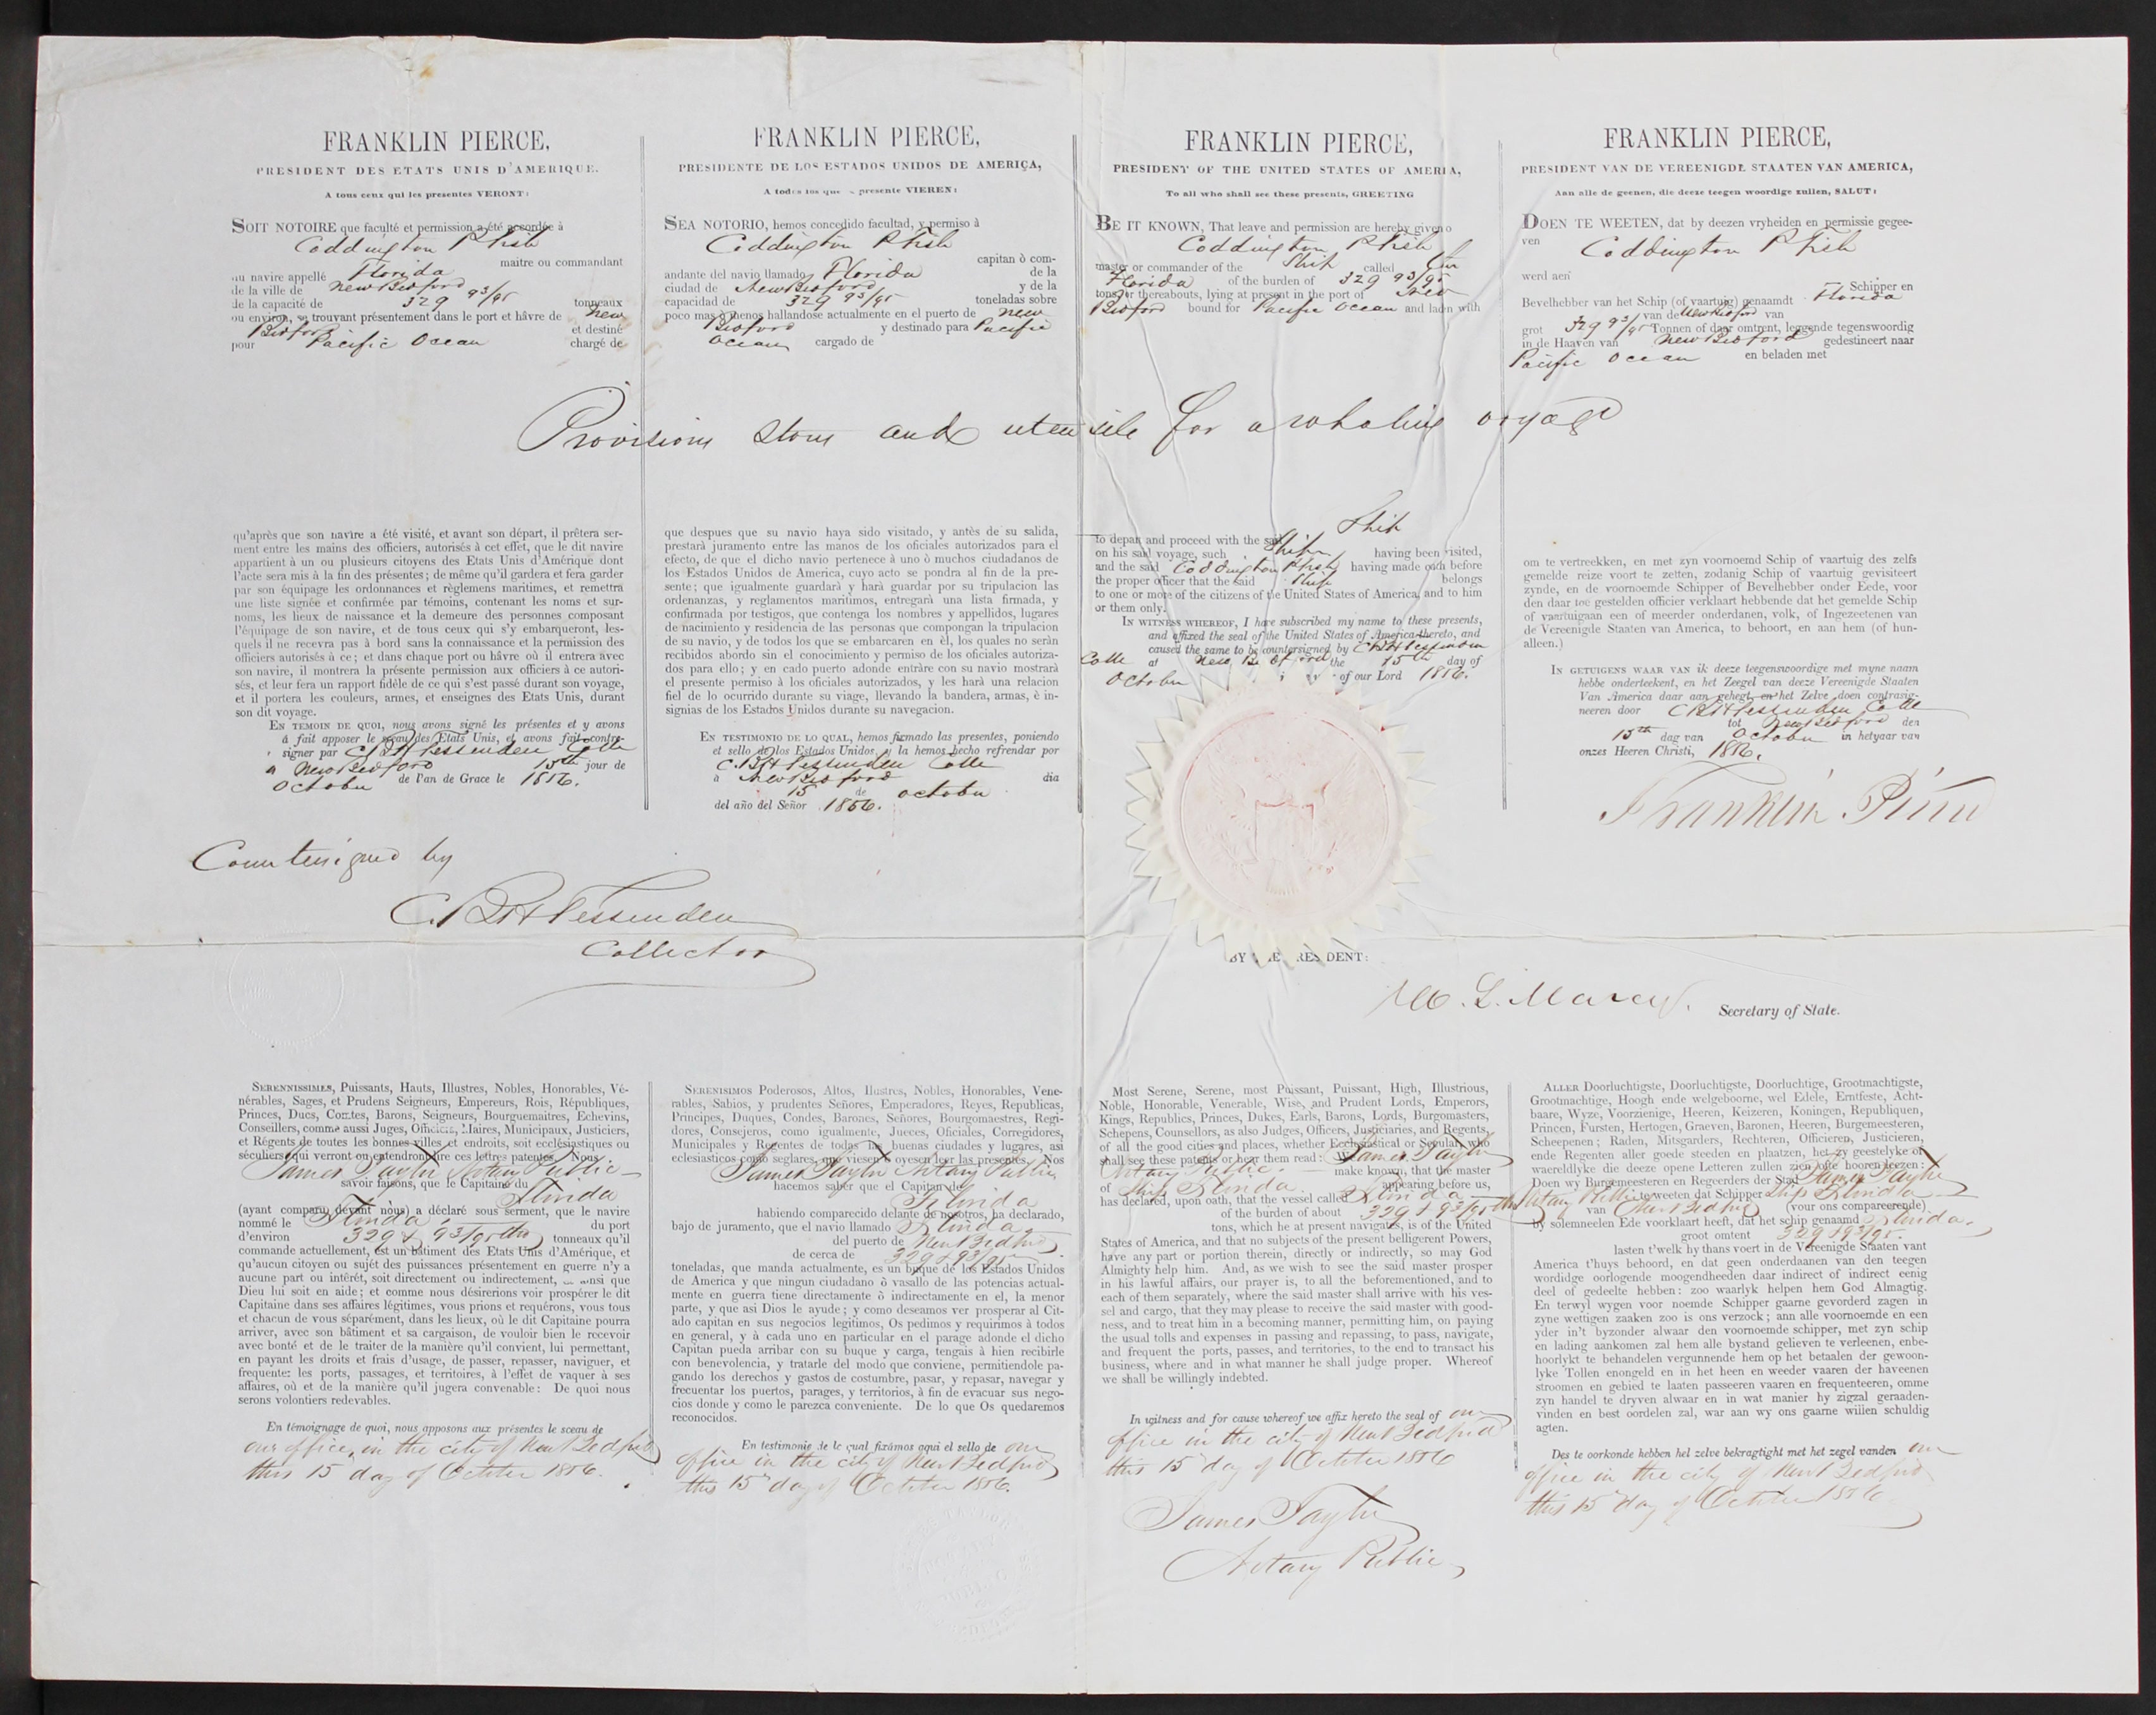 FRANKLIN PIERCE,
PRESIDENT DES ETATS UNIS D'AMERIQUE.
A tous ceux qui les presentes VERONT:
SOIT NOTOIRE que faculté et permission a été accordée à
Coddington P Fish
maitre ou commandant
au navire appellé Florida
de la ville de New Bedford
de la capacité de 329 93/95 tonneaux
ou environ, se trouvant présentement dans le port et hâvre de New
Bedford et destiné
pour Pacific Ocean chargé de
FRANKLIN PIERCE,
PRESIDENTE DE LOS ESTADOS UNIDOS DE AMERIÇA,
A todos los que presente VIEREN:
SEA NOTORIO, hemos concedido facultad, y permiso à
Coddington P Fish
capitan ò com-
andante del navio llamado Florida de la
ciudad de New Bedford y de la
capacidad de 329 93/95 toneladas sobre
poco mas ò menos hallandose actualmente en el puerto de New
Bedford y destinado para Pacific
Ocean cargado de
FRANKLIN PIERCE,
PRESIDENT OF THE UNITED STATES OF AMERICA,
To all who shall see these presents, GREETING
BE IT KNOWN, That leave and permission are hereby given to
Coddington P Fish
master or commander of the Ship called the
Florida of the burden of 329 93/95
tons or thereabouts, lying at present in the port of New
Bedford bound for Pacific Ocean and laden with
FRANKLIN PIERCE,
PRESIDENT VAN DE VEREENIGDE STAATEN VAN AMERICA,
Aan alle de geenen, die deeze teegen woordige zullen, SALUT:
DOEN TE WEETEN, dat by deezen vryheiden en permissie gegee-
ven Coddington P Fish
werd aen
Schipper en
Bevelhebber van het Schip (of vaartuig) genaamdt Florida
van de New Bedford van
grot 329 93/95 Tonnen of daar omtrent, leggende tegenswoordig
in de Haaven van New Bedford gedestineert naar
Pacific Ocean en beladen met
Provisions Stores and utensils for a whaling voyage
qu'après que son navire a été visité, et avant son départ, il prêtera ser-
ment entre les mains des officiers, autorisés à cet effet, que le dit navire
appartient à un ou plusieurs citoyens des Etats Unis d'Amérique dont
l'acte sera mis à la fin des présentes; de même qu'il gardera et fera garder
par son équipage les ordonnances et règlemens maritimes, et remettra
une liste signée et confirmée par témoins, contenant les noms et sur-
noms, les lieux de naissance et la demeure des personnes composant
l'équipage de son navire, et de tous ceux qui s'y embarqueront, les-
quels il ne recevra pas à bord sans la connaissance et la permission des
officiers autorisés à ce; et dans chaque port ou hâvre où il entrera avec
son navire, il montrera la présente permission aux officiers à ce autori-
sés, et leur fera un rapport fidèle de ce qui s'est passé durant son voyage,
et il portera les couleurs, armes, et enseignes des Etats Unis, durant
son dit voyage.
EN TEMOIN DE QUOI, nous avons signé les présentes et y avons
á fait apposer le sceau des Etats Unis, et avons fait contre-
signer par C. B. H Fessenden Colle
a New Bedford 15th jour de
October de l'an de Grace le 1856.
que despues que su navio haya sido visitado, y antès de su salida,
prestarà juramento entre las manos de los oficiales autorizados para el
efecto, de que el dicho navio pertenece à uno ò muchos ciudadanos de
los Estados Unidos de America, cuyo acto se pondra al fin de la pre-
sente; que igualmente guardarà y harà guardar por su tripulacion las
ordenanzas, y reglamentos maritimos, entregarà una lista firmada, y
confirmada por testigos, que contenga los nombres y appellidos, lugares
de nacimiento y residencia de las personas que compongan la tripulacion
de su navio, y de todos los que se embarcaren en èl, los quales no seràn
recibidos abordo sin el conocimiento y permiso de los oficiales autoriza-
dos para ello; y en cado puerto adonde entràre con su navio mostrarà
el presente permiso à los oficiales autorizados, y les harà una relacion
fiel de lo ocurrido durante su viage, llevando la bandera, armas, è in-
signias de los Estados Unidos durante su navegacion.
EN TESTIMONIO DE LO QUAL, hemos firmado las presentes, poniendo
et sello de los Estados Unidos, y la hemos hecho refrendar por
C. B. H Fessenden Colle
à New Bedford dia
15 de October
del año del Señor 1856.
Ship
to depart and proceed with the said
on his said voyage, such Ship having been visited,
and the said Coddington P Fish having made oath before
the proper officer that the said Ship belongs
to one or more of the citizens of the United States of America, and to him
or them only.
IN WITNESS WHEREOF, I have subscribed my name to these presents,
and affixed the seal of the United States of America thereto, and
caused the same to be countersigned by C B H Fessenden
Colle at New Bedford the 15th day of
October of our Lord 1856.
om te vertreekken, en met zyn voornoemd Schip of vaartuig des zelfs
gemelde reize voort te zetten, zodanig Schip of vaartuig gevisiteert
zynde, en de voornoemde Schipper of Bevelhebber onder Eede, voor
den daar toe gestelden officier verklaart hebbende dat het gemelde Schip
of vaartuigaan een of meerder onderdanen, volk, of Ingezeetenen van
de Vereenigde Staaten van America, to behoort, en aan hem (of hun-
alleen.)
IN GETUIGENS WAAR VAN ik deeze teegenswoordige met myne naam
hebbe onderteekent, en het Zeegel van deeze Vereenigde Staaten
Van America daar aan gehegt, en het Zelve doen contrasig-
neeren door C B H Fessenden Colle
tot New Bedford den
15th dag van October in hetyaar van
onzes Heeren Christi, 1856.
Franklin Pierce
Countersigned by
C. B. H Fessenden
Collector
BY THE PRESIDENT:
W. L. Marcy. Secretary of State.
SERENNISSIMES, Puissants, Hauts, Illustres, Nobles, Honorables, Vé-
nérables, Sages, et Prudens Seigneurs, Empereurs, Rois, Républiques,
Princes, Ducs, Comtes, Barons, Seigneurs, Bourguemaitres, Echevins,
Conseillers, comme aussi Juges, Officiers, Maires, Municipaux, Justiciers,
et Régents de toutes les bonnes villes et endroits, soit ecclésiastiques ou
séculiers qui verront ou entendront lire ces lettres patentes. Nous
James Taylor Notary Public
savoir faisons, que le Capitaine du Florida
(ayant comparu devant nous) a déclaré sous serment, que le navire
nommé le Florida du port
d'environ 329 & 93/95ths tonneaux qu'il
commande actuellement, est un bâtiment des Etats Unis d'Amérique, et
qu'aucun citoyen ou sujét des puissances présentement en guerre n'y a
aucune part ou intérêt, soit directement ou indirectement, ainsi que
Dieu lui soit en aide; et comme nous désirerions voir prospérer le dit
Capitaine dans ses affaires légitimes, vous prions et requérons, vous tous
et chacun de vous séparément, dans les lieux, où le dit Capitaine pourra
arriver, avec son bâtiment et sa cargaison, de vouloir bien le recevoir
avec bonté et de le traiter de la manière qu'il convient, lui permettant,
en payant les droits et frais d'usage, de passer, repasser, naviguer, et
frequente: les ports, passages, et territoires, à l'effet de vaquer à ses
affaires, où et de la manière qu'il jugera convenable: De quoi nous
serons volontiers redevables.
En témoignage de quoi, nous apposons aux présentes le sceau de
our office, in the city of New Bedford
this 15th day of October 1856.
SERENISIMOS Poderosos, Altos, Ilustres, Nobles, Honorables, Vene-
rables, Sabios, y prudentes Señores, Emperadores, Reyes, Republicas,
Principes, Duques, Condes, Barones, Señores, Bourgomaestres, Regi-
dores, Consejeros, como igualmente, Jueces, Oficiales, Corregidores,
Municipales y Regentes de todas las buenas ciudades y lugares, asi
eclesiasticos como seglares, que viesen ò oyesen leer las presentes. Nos
James Taylor Notary Public
hacemos saber que el Capitan del
Florida
habiendo comparecido delante de nosotros, ha declarado,
bajo de juramento, que el navio llamado Florida
del puerto de New Bedford
de cerca de 329 & 93/95
toneladas, que manda actualmente, es un buque de los Estados Unidos
de America y que ningun ciudadano ò vasallo de las potencias actual-
mente en guerra tiene directamente ò indirectamente en el, la menor
parte, y que asi Dios le ayude; y como deseamos ver prosperar al Cit-
ado capitan en sus negocios legitimos, Os pedimos y requirimos à todos
en general, y à cada uno en particular en el parage adonde el dicho
Capitan pueda arribar con su buque y carga, tengais à hien recibirle
con benevolencia, y tratarle del modo que conviene, permitiendole pa-
gando los derechos y gastos de costumbre, pasar, y repasar, navegar y
frecuentar los puertos, parages, y territorios, à fin de evacuar sus nego-
cios donde y como le parezca conveniente. De lo que Os quedaremos
reconocidos.
En testimonie de le qual fixámos aqui el sello de our
office in the city of New Bedford
this 15th day of October 1856.
Most Serene, Serene, most Puissant, Puissant, High, Illustrious,
Noble, Honorable, Venerable, Wise, and Prudent Lords, Emperors,
Kings, Republics, Princes, Dukes, Earls, Barons, Lords, Burgomasters,
Schepens, Counsellors, as also Judges, Officers, Justiciaries, and Regents,
of all the good cities and places, whether Ecclesiastical or Secular, who
shall see these patents or hear them read: We James Taylor
Notary Public. make known, that the master
of Ship Florida. appearing before us,
has declared, upon oath, that the vessel called Florida
of the burden of about 329 & 93/95ths
tons, which he at present navigates, is of the United
States of America, and that no subjects of the present belligerent Powers,
have any part or portion therein, directly or indirectly, so may God
Almighty help him. And, as we wish to see the said master prosper
in his lawful affairs, our prayer is, to all the beforementioned, and to
each of them separately, where the said master shall arrive with his ves-
sel and cargo, that they may please to receive the said master with good-
ness, and to treat him in a becoming manner, permitting him, on paying
the usual tolls and expenses in passing and repassing, to pass, navigate,
and frequent the ports, passes, and territories, to the end to transact his
business, where and in what manner he shall judge proper. Whereof
we shall be willingly indebted.
In witness and for cause whereof we affix hereto the seal of our
office in the city of New Bedford
this 15th day of October 1856
James Taylor
Notary Public
ALLER Doorluchtigste, Doorluchtigste, Doorluchtige, Grootmachtigste,
Grootmachtige, Hoogh ende welgeboorne, wel Edele, Erntfeste, Acht-
baare, Wyze, Voorzienige, Heeren, Keizeren, Koningen, Republiquen,
Princen, Fursten, Hertogen, Graeven, Baronen, Heeren, Burgemeesteren,
Scheepenen; Raden, Mitsgarders, Rechteren, Officieren, Justicieren,
ende Regenten aller goede steeden en plaatzen, het zy geestelyke of
waereldlyke die deeze opene Letteren zullen zien ofte hooren leezen:
Doen wy Burgemeesteren en Regeerders der Stad James Taylor
Notary Public te weeten dat Schipper Ship Florida
van New Bedford (vour ons compareerende)
by solemneelen Ede voorklaart heeft, dat het schip genaamd Florida.
groot omtent 329 & 93/95.
lasten t'welk hy thans voert in de Vereenigde Staaten vant
America t'huys behoord, en dat geen onderdaanen van den teegen
wordidge oorlogende moogendheeden daar indirect of indirect eenig
deel of gedeelte hebben: zoo waarlyk helpen hem God Almagtig.
En terwyl wygen voor noemde Schipper gaarne gevorderd zagen in
zyne wettigen zaaken zoo is ons verzock; ann alle voornoemde en een
yder in't byzonder alwaar den voornoemde schipper, met zyn schip
en lading aankomen zal hem alle bystand gelieven te verleenen, enbe-
hoorlykt te behandelen vergunnende hem op het betaalen der gewoon-
lyke Tollen enongeld en in het heen en weeder vaaren der haveenen
stroomen en gebied te laaten passeeren vaaren en frequenteeren, omme
zyn handel te dryven alwaar en in wat manier hy zigzal geraaden-
vinden en best oordelen zal, war aan wy ons gaarne willen schuldig
agten.
Des te oorkonde hebben hel zelve bekragtight met het zegel vanden our
office in the city of New Bedford
this 15th day of October 1856